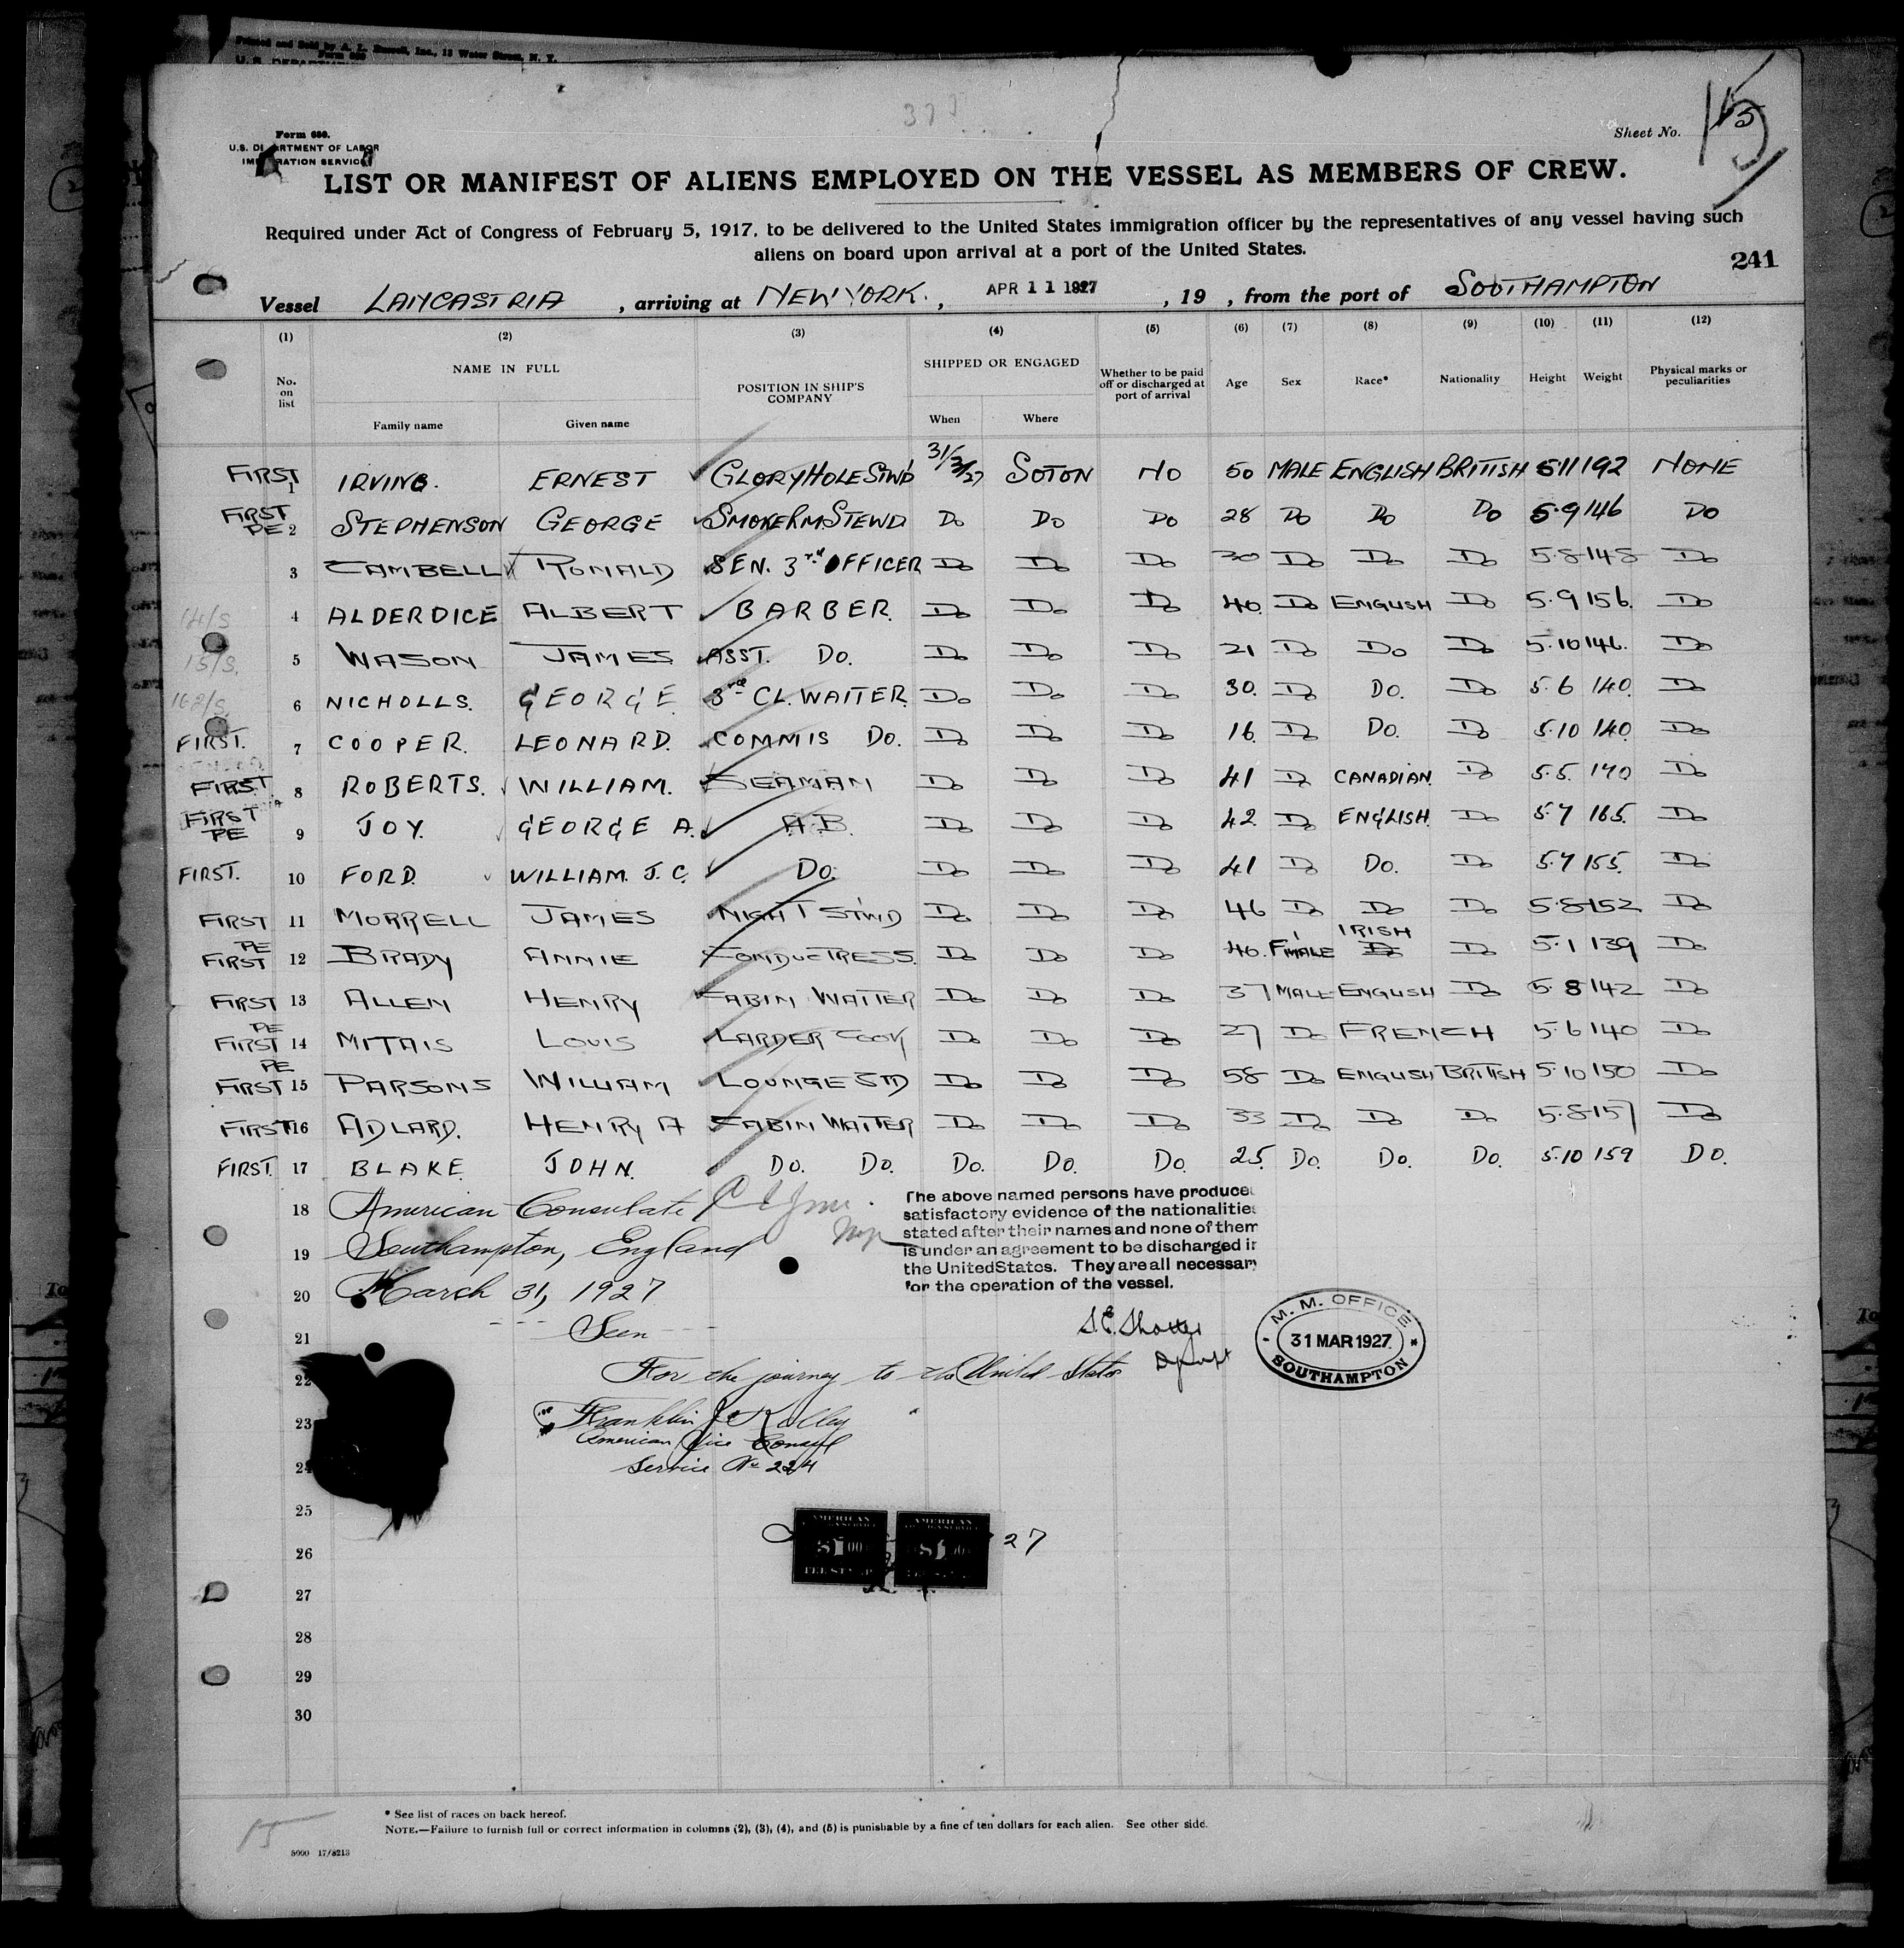 Form 680.
U.S. DEPARTMENT OF LABOR
IMMIGRATION SERVICE
Sheet No. 15
LIST OR MANIFEST OF ALIENS EMPLOYED ON THE VESSEL AS MEMBERS OF CREW.
Required under Act of Congress of February 5, 1917, to be delivered to the United States immigration officer by the representatives of any vessel having such
aliens on board upon arrival at a port of the United States.
241
Vessel LANCASTRIA, arriving at NEW YORK., APR 11 1927, 19 , from the port of SOUTHAMPTON
(1) (2) (3) (4) (5) (6) (7) (8) (9) (10) (11) (12)
No. on list NAME IN FULL Family name Given name POSITION IN SHIP'S COMPANY SHIPPED OR ENGAGED When Where Whether to be paid off or discharged at port of arrival Age Sex Race* Nationality Height Weight Physical marks or peculiarities
FIRST 1 IRVING. ERNEST GLORY HOLE STWD 31/3/27 SOTON NO 50 MALE ENGLISH BRITISH 5 11 192 NONE
FIRST PE 2 STEPHENSON GEORGE SMOKE RM STEWD Do Do Do 28 Do Do Do 5.9 146 Do
3 CAMBELL RONALD SEN. 3rd OFFICER Do Do Do 30 Do Do Do 5.8 148 Do
14/S 4 ALDERDICE ALBERT BARBER. Do Do Do 40. Do ENGLISH Do 5.9 156. Do
15/S. 5 WASON JAMES ASST. DO. Do Do Do 21 Do Do Do 5.10 146. Do
6 NICHOLLS. GEORGE 3rd CL. WAITER. Do Do Do 30. Do DO. Do 5.6 140. Do
FIRST. 7 COOPER. LEONARD. COMMIS DO. Do Do Do 16. Do DO. Do 5.10 140. Do
FIRST. 8 ROBERTS. WILLIAM. SEAMAN Do Do Do 41 Do CANADIAN. Do 5.5. 170 Do
FIRST PE 9 JOY. GEORGE A. A.B. Do Do Do 42. Do ENGLISH. Do 5.7 165. Do
FIRST. 10 FORD. WILLIAM. J. C. DO. Do Do Do 41 Do DO. Do 5.7 155. Do
FIRST 11 MORRELL JAMES NIGHT STWD Do Do Do 46 Do Do Do 5.8 152 Do
PE FIRST 12 BRADY ANNIE CONDUCTRESS. Do Do Do 40. FMALE IRISH Do Do 5.1 139 Do
FIRST 13 ALLEN HENRY CABIN WAITER Do Do Do 37 MALE ENGLISH Do 5.8 142 Do
PE FIRST 14 MITAIS LOUIS LARDER COOK Do Do Do 27 Do FRENCH 5.6 140 Do
PE FIRST 15 PARSONS WILLIAM LOUNGE STD Do Do Do 58 Do ENGLISH BRITISH 5.10 150 Do
FIRST 16 ADLARD. HENRY A CABIN WAITER Do Do Do 33 Do Do Do 5.8 157 Do
FIRST. 17 BLAKE JOHN. DO. DO. DO. DO. DO. 25. DO. DO. DO. 5.10 159 DO.
18 American Consulate
19 Southampton, England
20 March 31, 1927
The above named persons have produced
satisfactory evidence of the nationalities
stated after their names and none of them
is under an agreement to be discharged in
the United States. They are all necessary
for the operation of the vessel.
21 Seen
M. M. OFFICE
31 MAR 1927
SOUTHAMPTON
22 For the journey to the United States
23 Franklin
American Vice Consul
24 Service No 224
25
AMERICAN $1.00 FEE STAMP AMERICAN $1.00 27
26
27
28
29
30
15
* See list of races on back hereof.
NOTE.—Failure to furnish full or correct information in columns (2), (3), (4), and (5) is punishable by a fine of ten dollars for each alien. See other side.
5000 17/8213